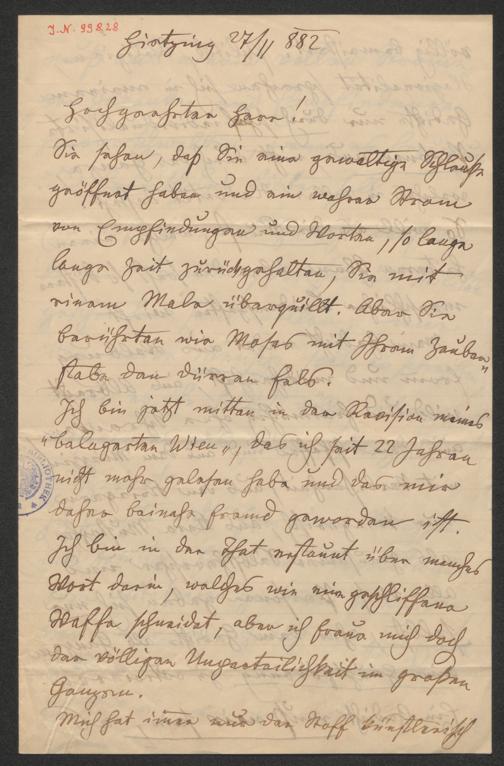 J.N. 99828
Hietzing 27/11 882
Hochgeehrter Herr!
Sie sehen, daß Sie eine gewaltige Schleuße
geöffnet haben und ein wahrer Strom
von Empfindungen und Worten, so lange
lange Zeit zurückgehalten, Sie mit
einem Male überquillt. Aber Sie
berührten wie Moses mit Ihrem Zauber-
stabe den dürren Fels.
Ich bin jetzt mitten in der Revision meines
"belagerten Wien", das ich seit 22 Jahren
nicht mehr gelesen habe und das mir
daher beinahe fremd geworden ist.
Ich bin in der That erstaunt über manches
Wort darin, welches wie eine geschliffene
Waffe schneidet, aber ich freue mich doch
der völligen Unparteilichkeit im großen
Ganzen.
Mich hat immer nur der Stoff künstlerisch